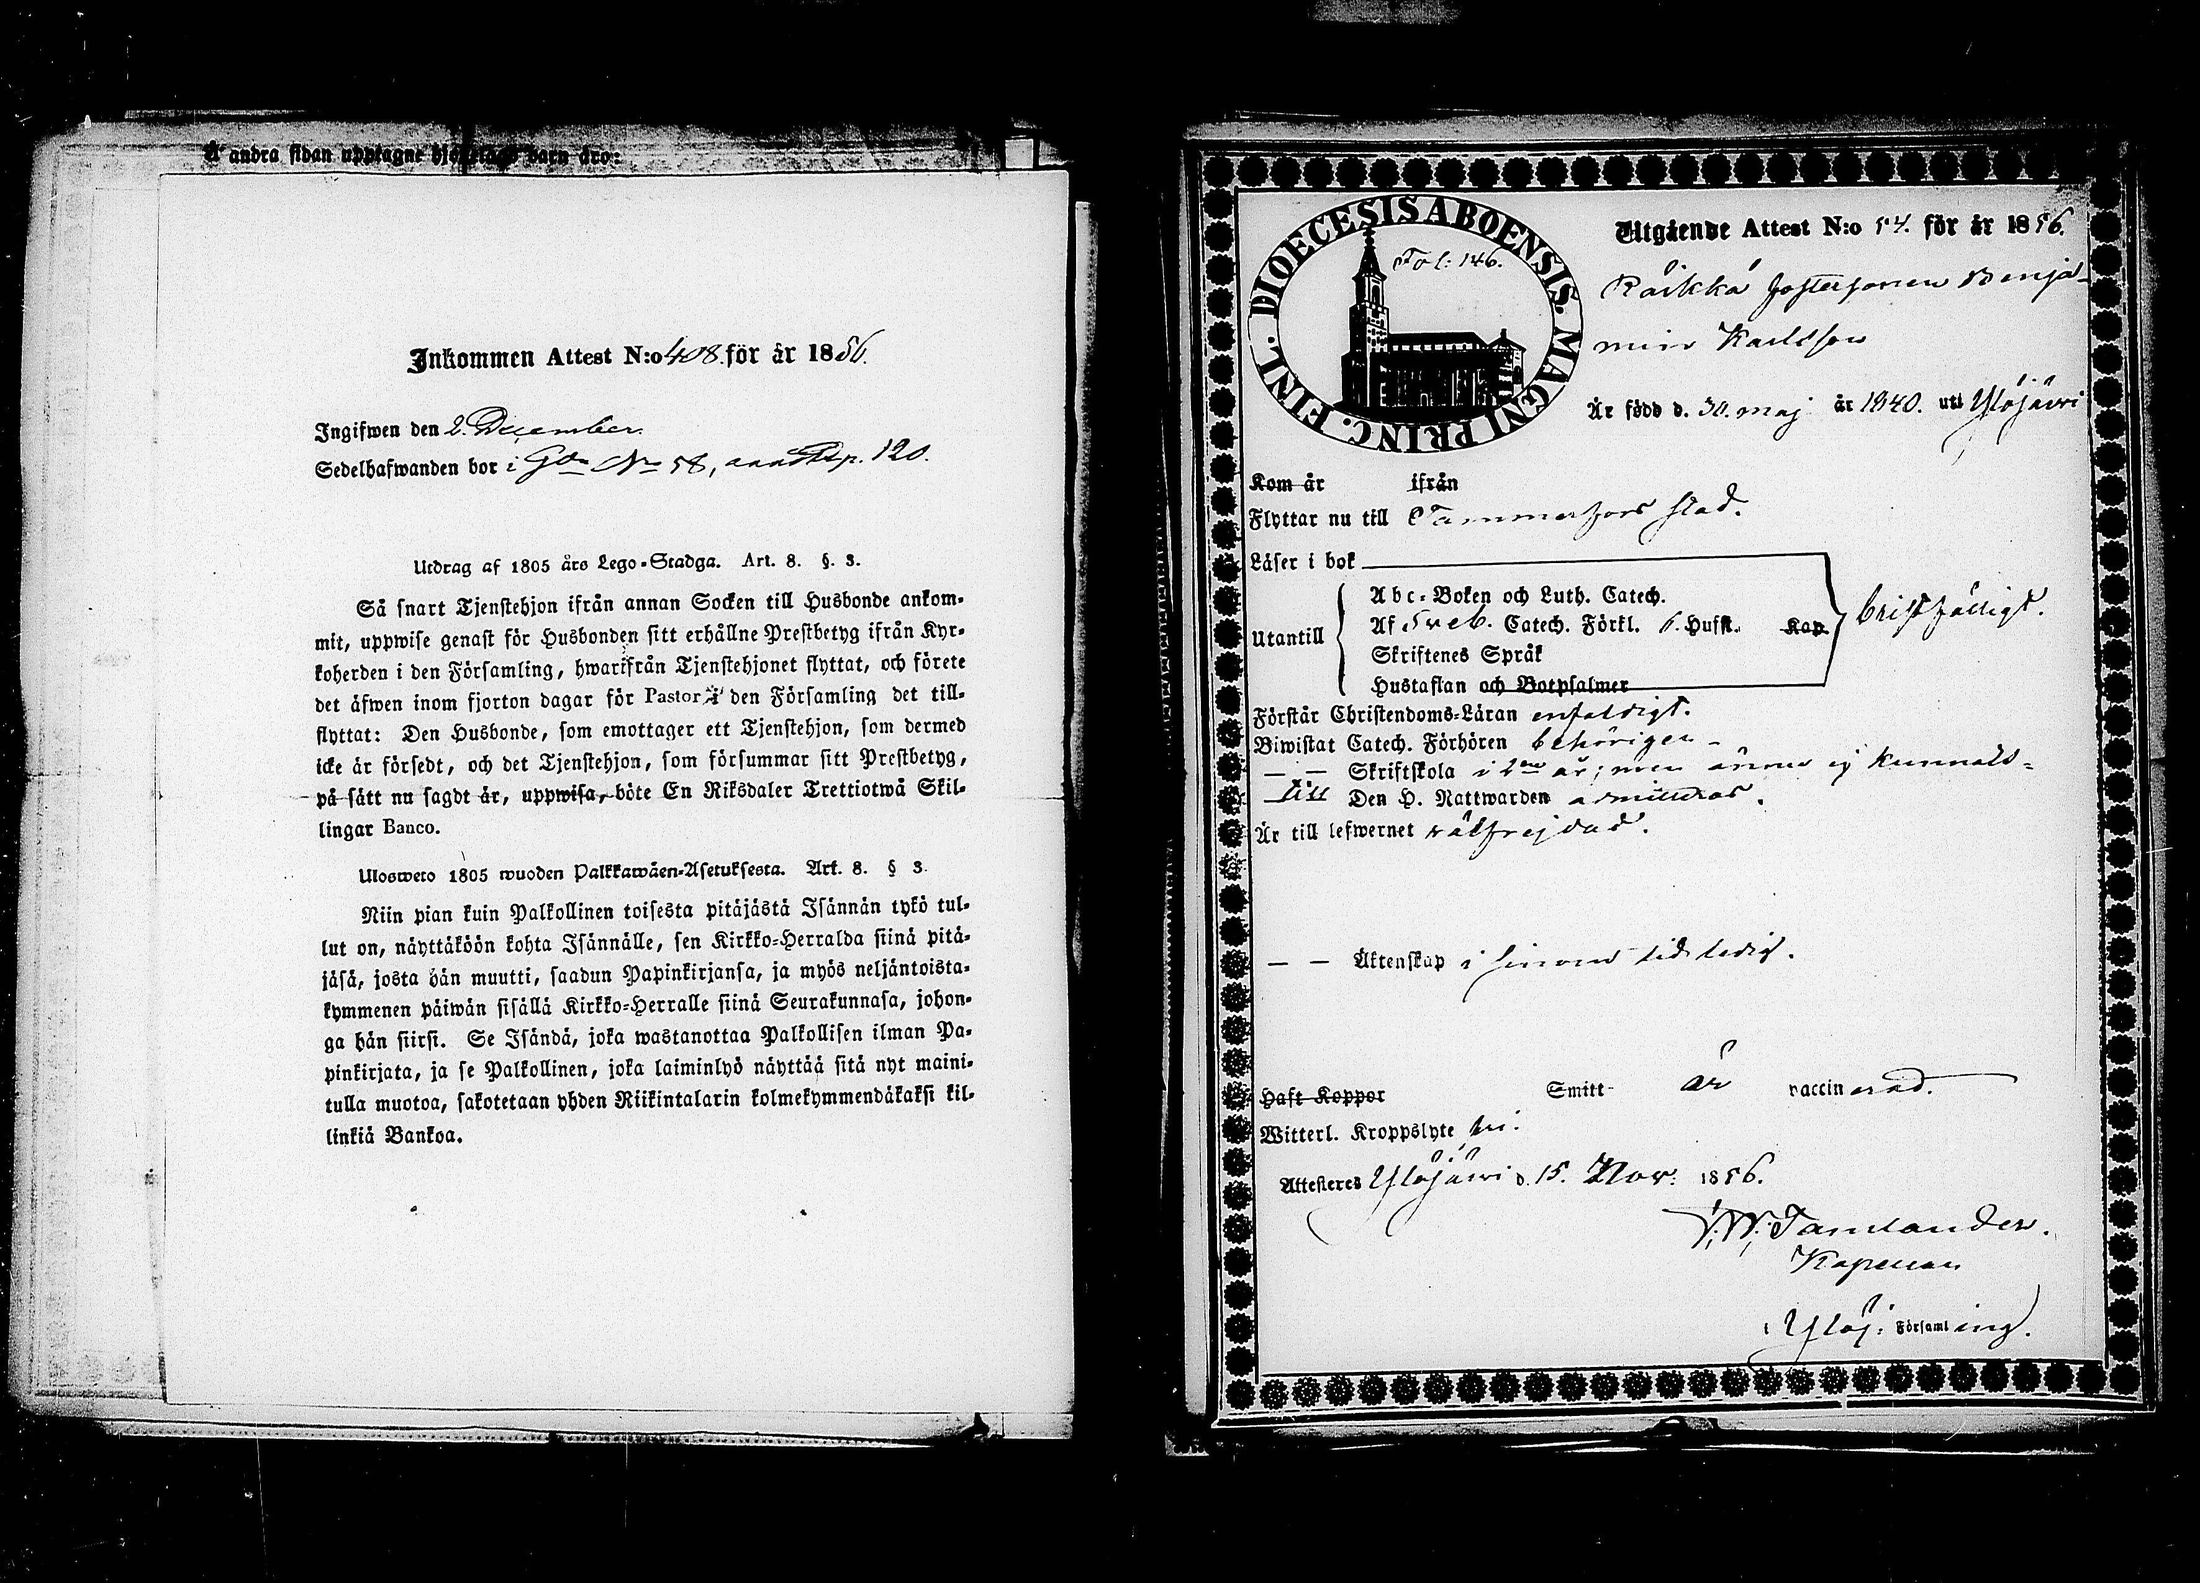 Å andra sidan upptagne hjonelags barn äro:
Inkommen Attest N:o 408. för år 1856.
Ingifwen den 2. December.
Sedelhafwanden bor i Gdn No 58, p. 120.
Utdrag af 1805 års Lego-Stadga. Art. 8. §. 3.
Så snart Tjenstehjon ifrån annan Socken till Husbonde ankom-
mit, uppwise genast för Husbonden sitt erhållne Prestbetyg ifrån Kyr-
koherden i den Församling, hwarifrån Tjenstehjonet flyttat, och förete
det äfwen inom fjorton dagar för Pastor i den Församling det till-
flyttat: Den Husbonde, som emottager ett Tjenstehjon, som dermed
icke är försedt, och det Tjenstehjon, som försummar sitt Prestbetyg,
på sätt nu sagdt är, uppwisa, böte En Riksdaler Trettiotwå Skil-
lingar Banco.
Ulosweto 1805 wuoden Palkkawäen-Asetuksesta. Art. 8. § 3.
Niin pian kuin Palkollinen toisesta pitäjästä Isännän tykö tul-
lut on, näyttäköön kohta Isännälle, sen Kirkko-Herralda siinä pitä-
jäsä, josta hän muutti, saadun Papinkirjansa, ja myös neljäntoista-
kymmenen päiwän sisällä Kirkko-Herralle siinä Seurakunnasa, johon-
ga hän siirsi. Se Isändä, joka wastanottaa Palkollisen ilman Pa-
pinkirjata, ja se Palkollinen, joka laiminlyö näyttää sitä nyt maini-
tulla muotoa, sakotetaan yhden Riikintalarin kolmekymmendäkaksi kil-
linkiä Bankoa.
DIOECESIS ABOENSIS. MAGNI PRINC. FINL.
Fol: 146.
Utgående Attest N:o 54. för år 1856.
Räikkä fostersonen Benja-
min Karlsson
Är född d. 30. maj år 1840. uti Ylöjärvi
Kom år ifrån
Flyttar nu till Tammerfors stad.
Läser i bok
Utantill
Abc-Boken och Luth. Catech.
Af Sveb. Catech. Förkl. 6. Hufst. Kap.
Skriftenes Språk
Hustaflan och Botpsalmer
bristfälligt.
Förstår Christendoms-Läran enfaldigt.
Biwistat Catech. Förhören behörigen
— — Skriftskola i 2ne år; men ännu ej kunnats
till Den H. Nattwarden admitteras.
Är till lefwernet välfrejdad.
— — Äktenskap i sinom tid ledig.
Haft Koppor Smitt är vaccinerad.
Witterl. Kroppslyte fri.
Attesteres Ylöjärvi d. 15. Nov: 1856.
Tamlander.
Kapellan
i Ylöj: Församling.